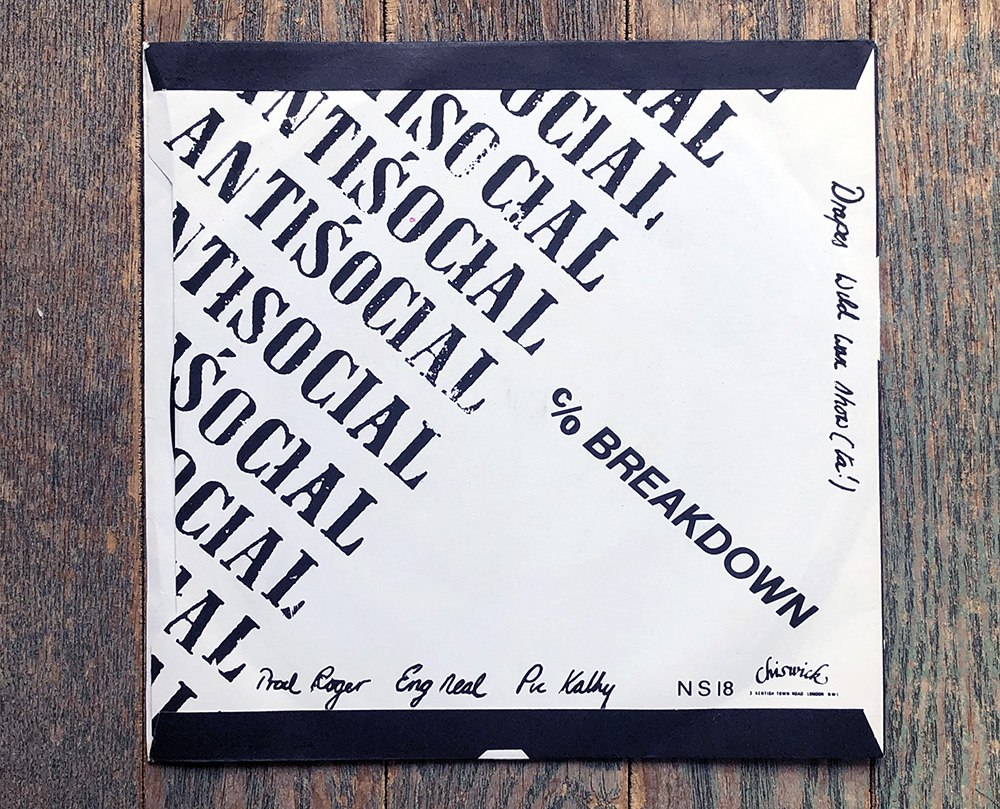 OCIAL
TISOCIAL
ANTISOCIAL
ANTISOCIAL
NTISOCIAL
ISOCIAL
OCIAL
IAL
AL
c/o BREAKDOWN
Drapes Wild wax show (ta!)
Prod Roger Eng Neal Pic Kathy
NS18
Chiswick
3 KENTISH TOWN ROAD LONDON NW1